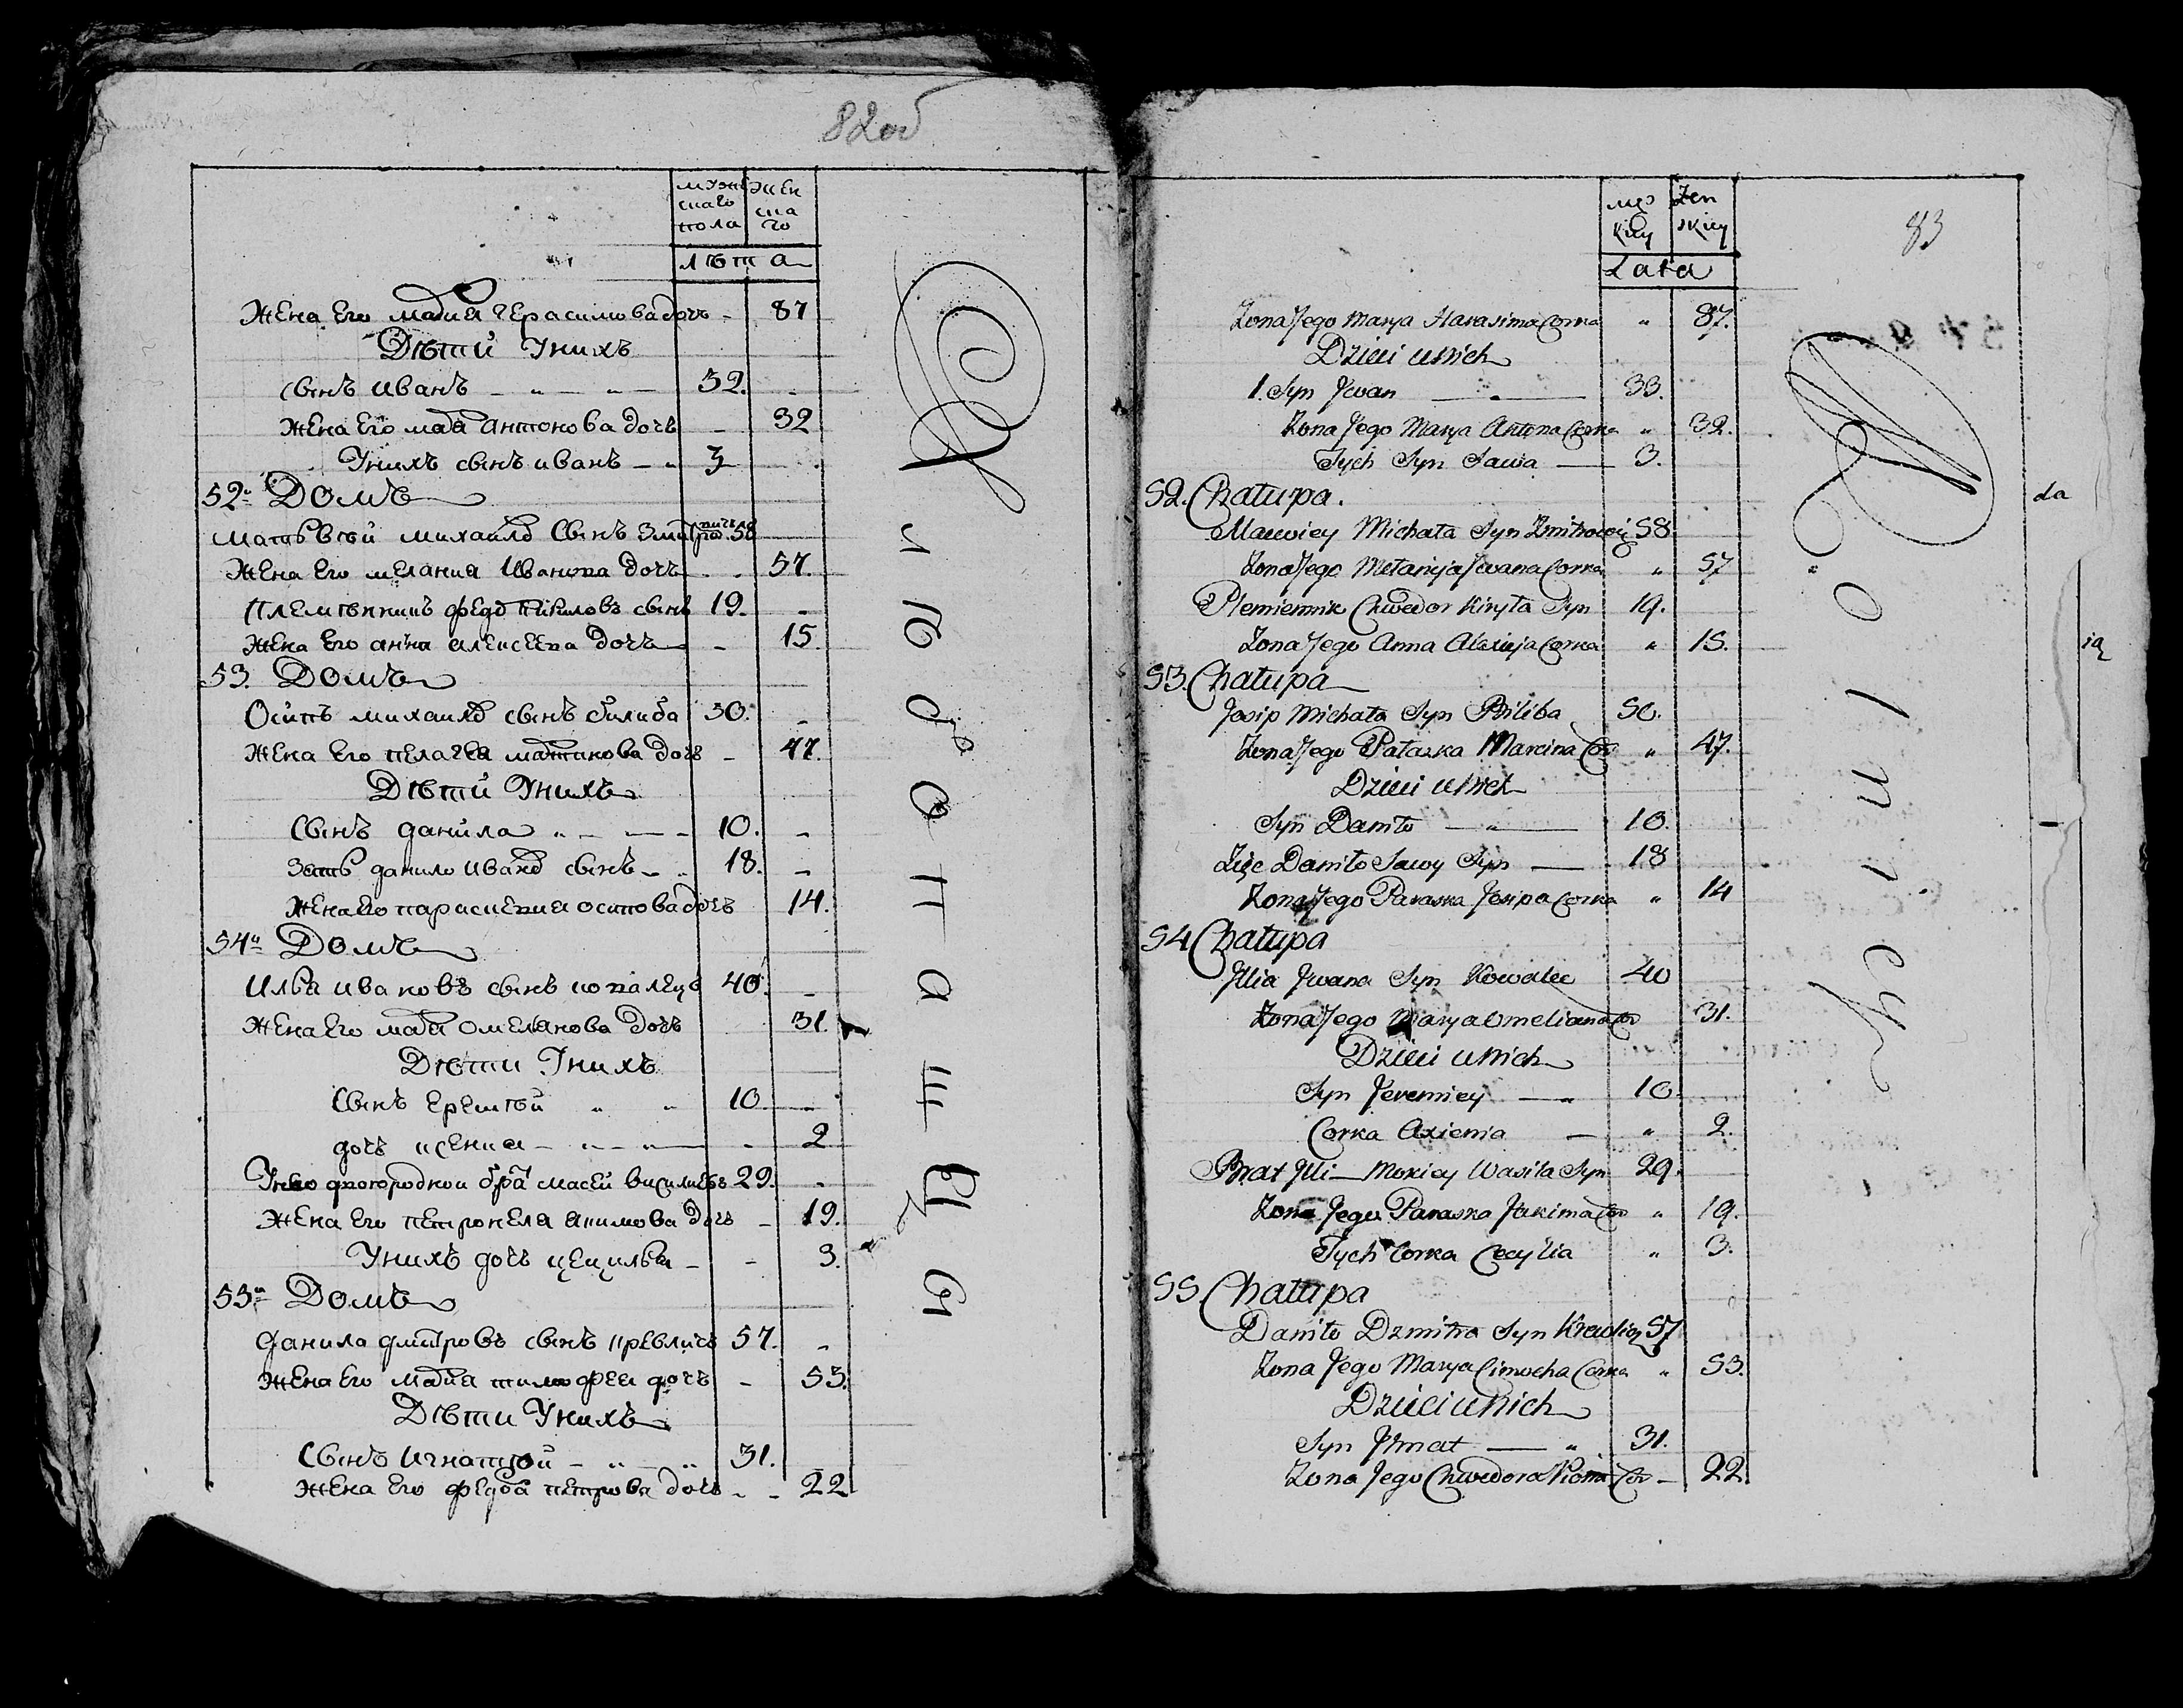 82об
мужескаго пола
женскаго
лѣта
Жена его марiа герасимова дочь - 87
Дѣти Унихъ
Сынъ иванъ 32.
Жена его марiа антонова дочь - 32
Унихъ сынъ иванъ 3
52й Домъ
матьвѣй михаилов Сынъ 58
Жена его меланиа Иванова дочь 57.
Племѣнникъ федор кириловъ сынъ 19.
жена его анна алексеева дочь - 15.
53. Домъ
Осипъ михаилов сынъ билиба 50.
Жена его пелагея мартинова дочь - 47.
Дѣти Унихъ
Сынъ данила 10.
зять данило иванов сынъ 18.
Жена его параскевиа осипова дочь 14.
54й Домъ
Илья ивановъ сынъ ковалецъ 40.
жена его марiа омелянова дочь 31.
Дѣти Унихъ
Сынъ еремѣй 10
дочь ксениа - 2
брат масей василиевъ 29.
Жена его петронела акимова дочь - 19.
Унихъ дочь цецилыа - 3.
55й Домъ
данила дмитровъ сынъ кревличь 57.
Жена его марiа тимофеа дочь - 53.
Дѣти Унихъ
Сынъ игнатѣй 31.
Жена его федора петрова дочь - 22
лѣбопашцы
83
męskiey
żenskiey
Lata
Żona Jego Marya Harasima Corka „ 87.
Dzieci u Nich
1. Syn Jwan 33.
Żona Jego Marya Antona Corka „ 32.
Tych Syn Sawa 3.
52. Chałupa.
Mauviey Michała Syn Zmitrowicz 58
Żona Jego Mełanija Jwana Corka „ 57
Plemiennik Chwedor Kiryła Syn 19.
Żona Jego Anna Alexieja Corka „ 15.
53. Chałupa
Josip Michała Syn Biliba 50.
Żona Jego Pałaszka Marcina Cor „ 47.
Dzieci u Nich
Syn Daniło 10.
Zięc Daniło Sawy Syn 18
Żona Jego Paraska Josipa Corka „ 14
54 Chałupa
Jllia Jwana Syn Kowalec 40
Żona Jego Marya Omeliana Cor 31.
Dzieci u Nich
Syn Jeremiey 10.
Corka Axienia „ 2.
Brat Jlli Mokiey Wasila Syn 29.
Żona Jego Paraska Jakima Cor „ 19.
Tych Corka Cecylia „ 3.
55 Chałupa
Daniło Dzmitra Syn Krewlicz 57
Żona Jego Marya Cimocha Corka „ 53.
Dzieci u Nich
Syn Jhnat 31.
Żona Jego Chwedora Piotra Cor 22.
Rolnicy
da
ią